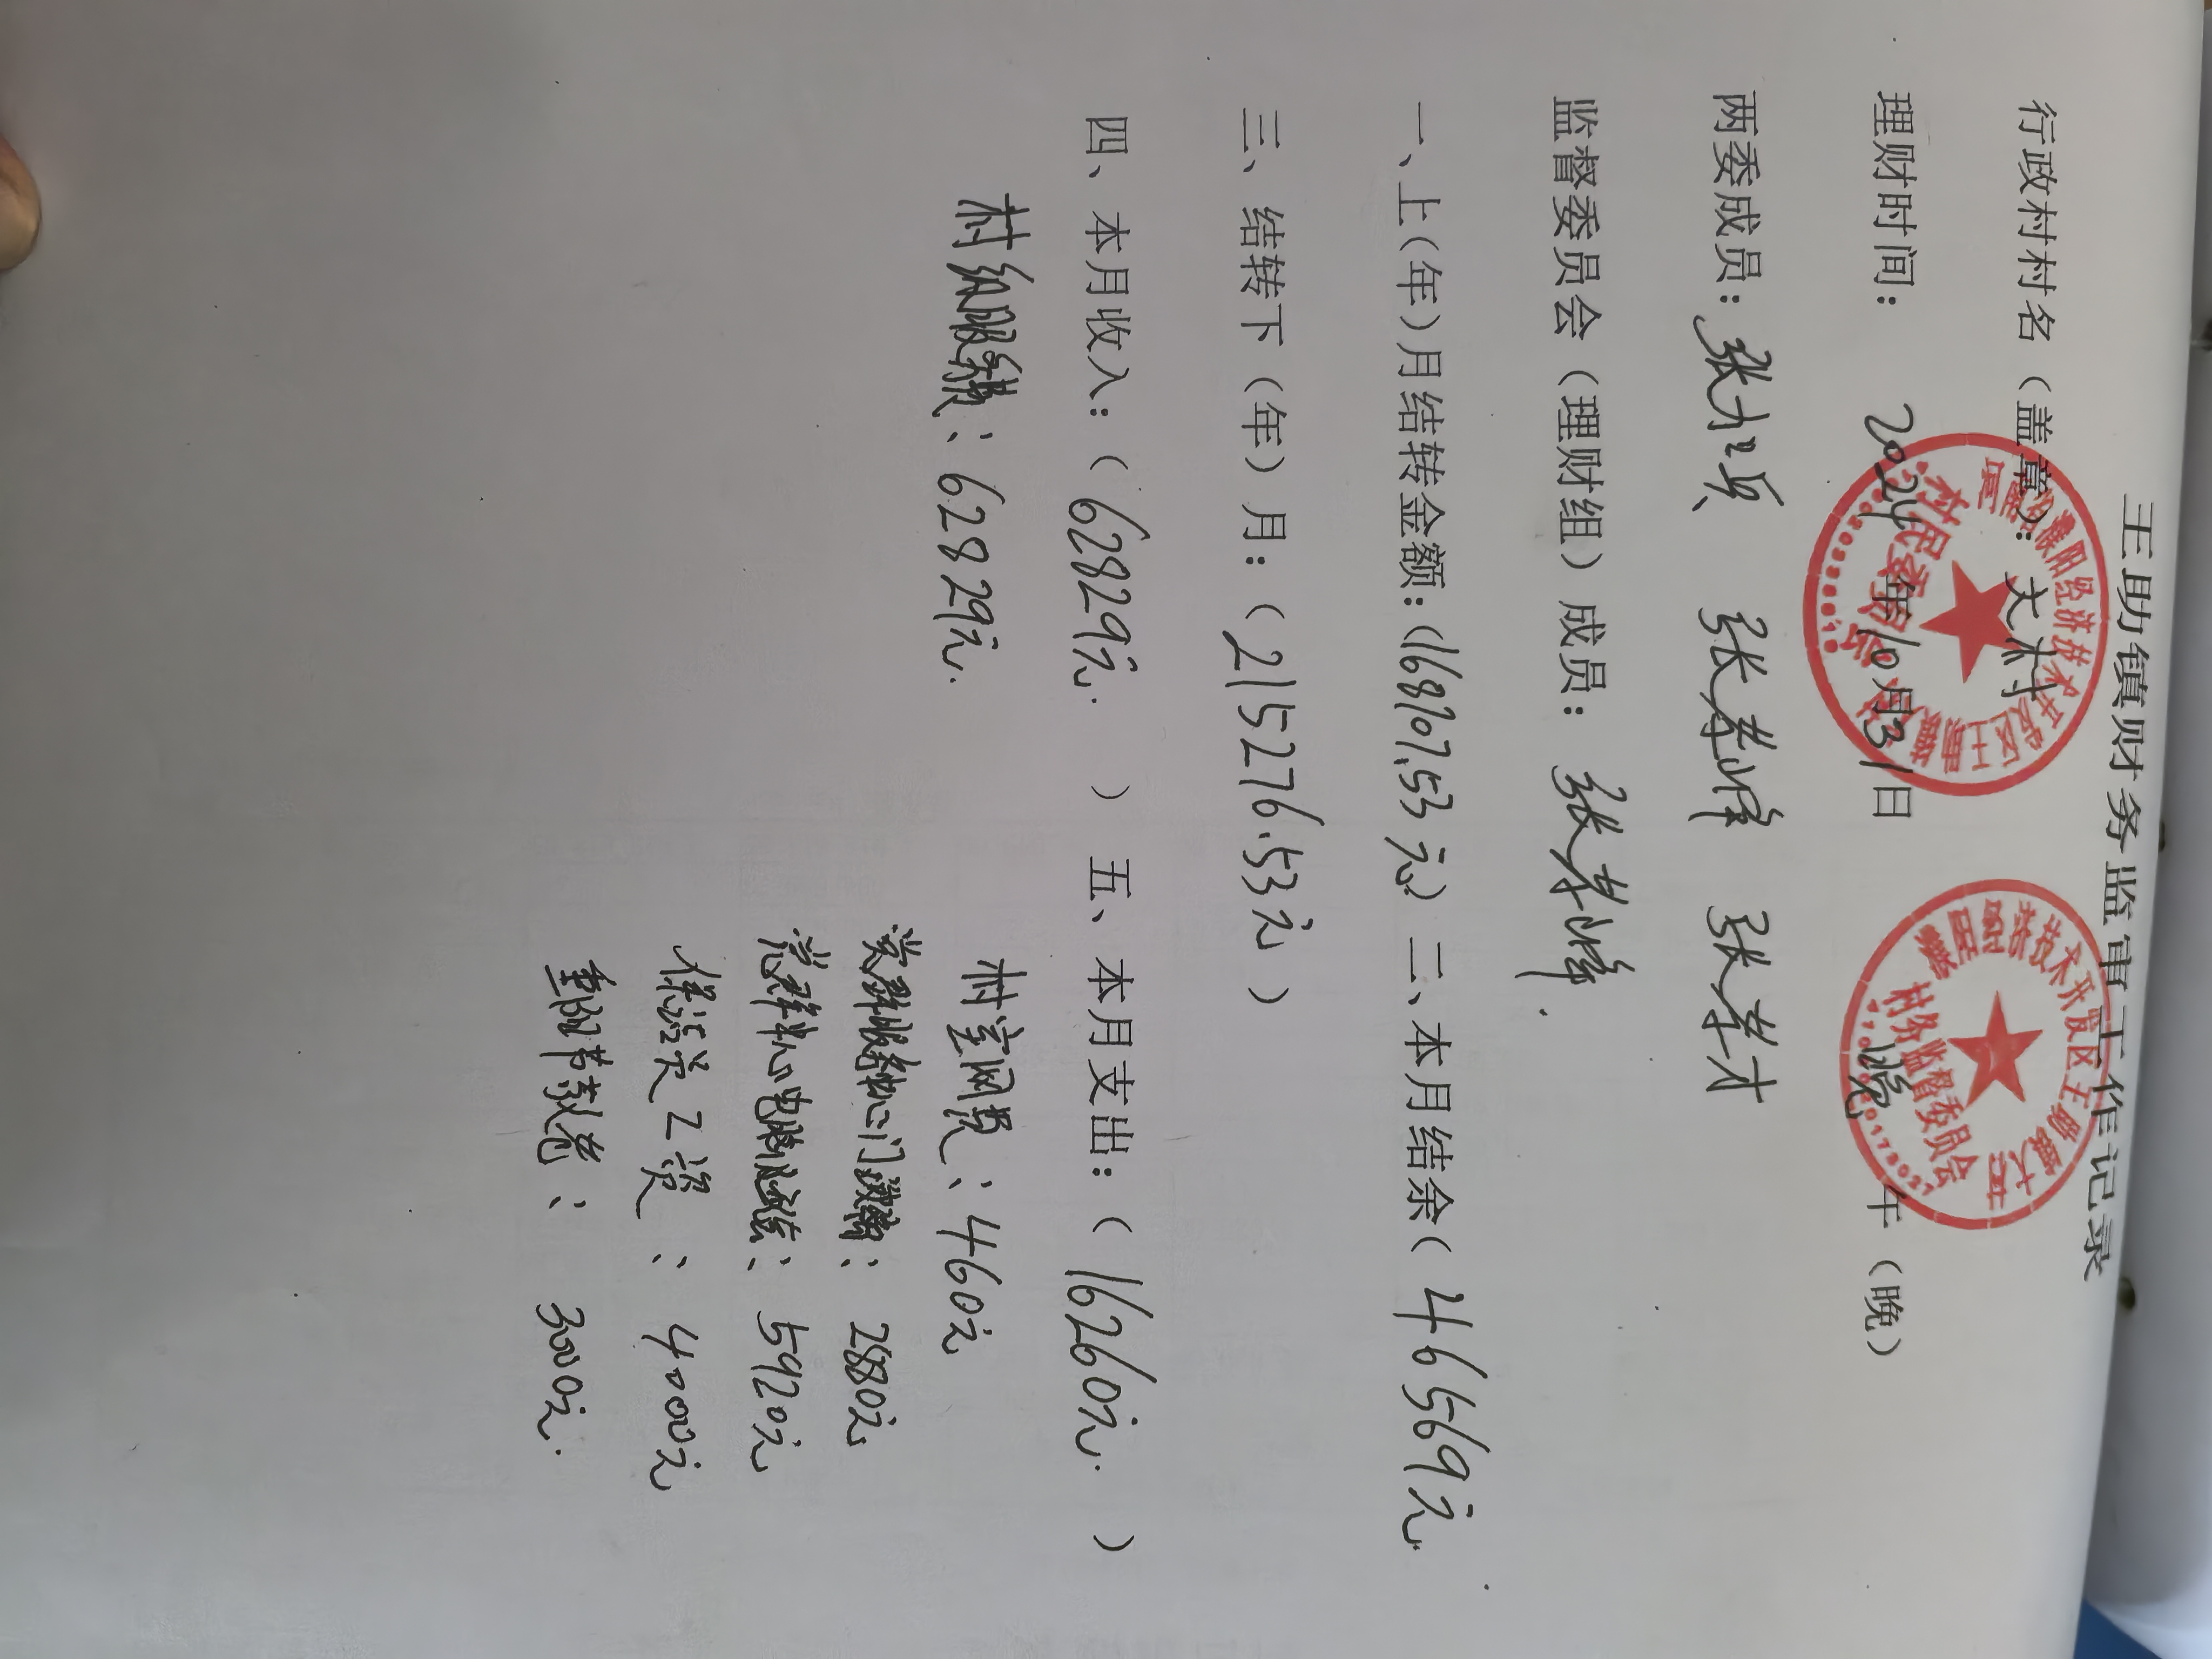 王助镇财务监审工作记录
行政村村名（盖章）： 大村
理财时间： 2024年10月31日 晚 午（晚）
两委成员：张 张 峰 张 才
监督委员会（理财组）成员： 张 峰.
一、上（年）月结转金额：（168707.53元） 二、本月结余（46569元.
三、结转下（年）月：（215276.53元）
四、本月收入：（62829元. ） 五、本月支出：（16260元. ）
村级服务：62829元.
村室网费：460元
党群服务中心门：2880元
党群中心电：5920元
保洁员工资：4000元
重阳节慰老：3000元.
濮阳经济技术开发区王助镇
村民委员会
濮阳经济技术开发区王助镇大村
村务监督委员会